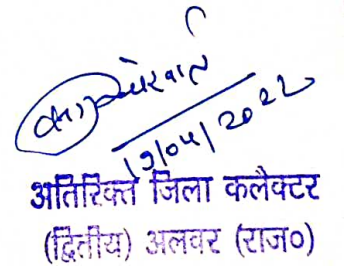 19/04/2022
अतिरिक्त जिला कलैक्टर
(द्वितीय) अलवर (राज०)